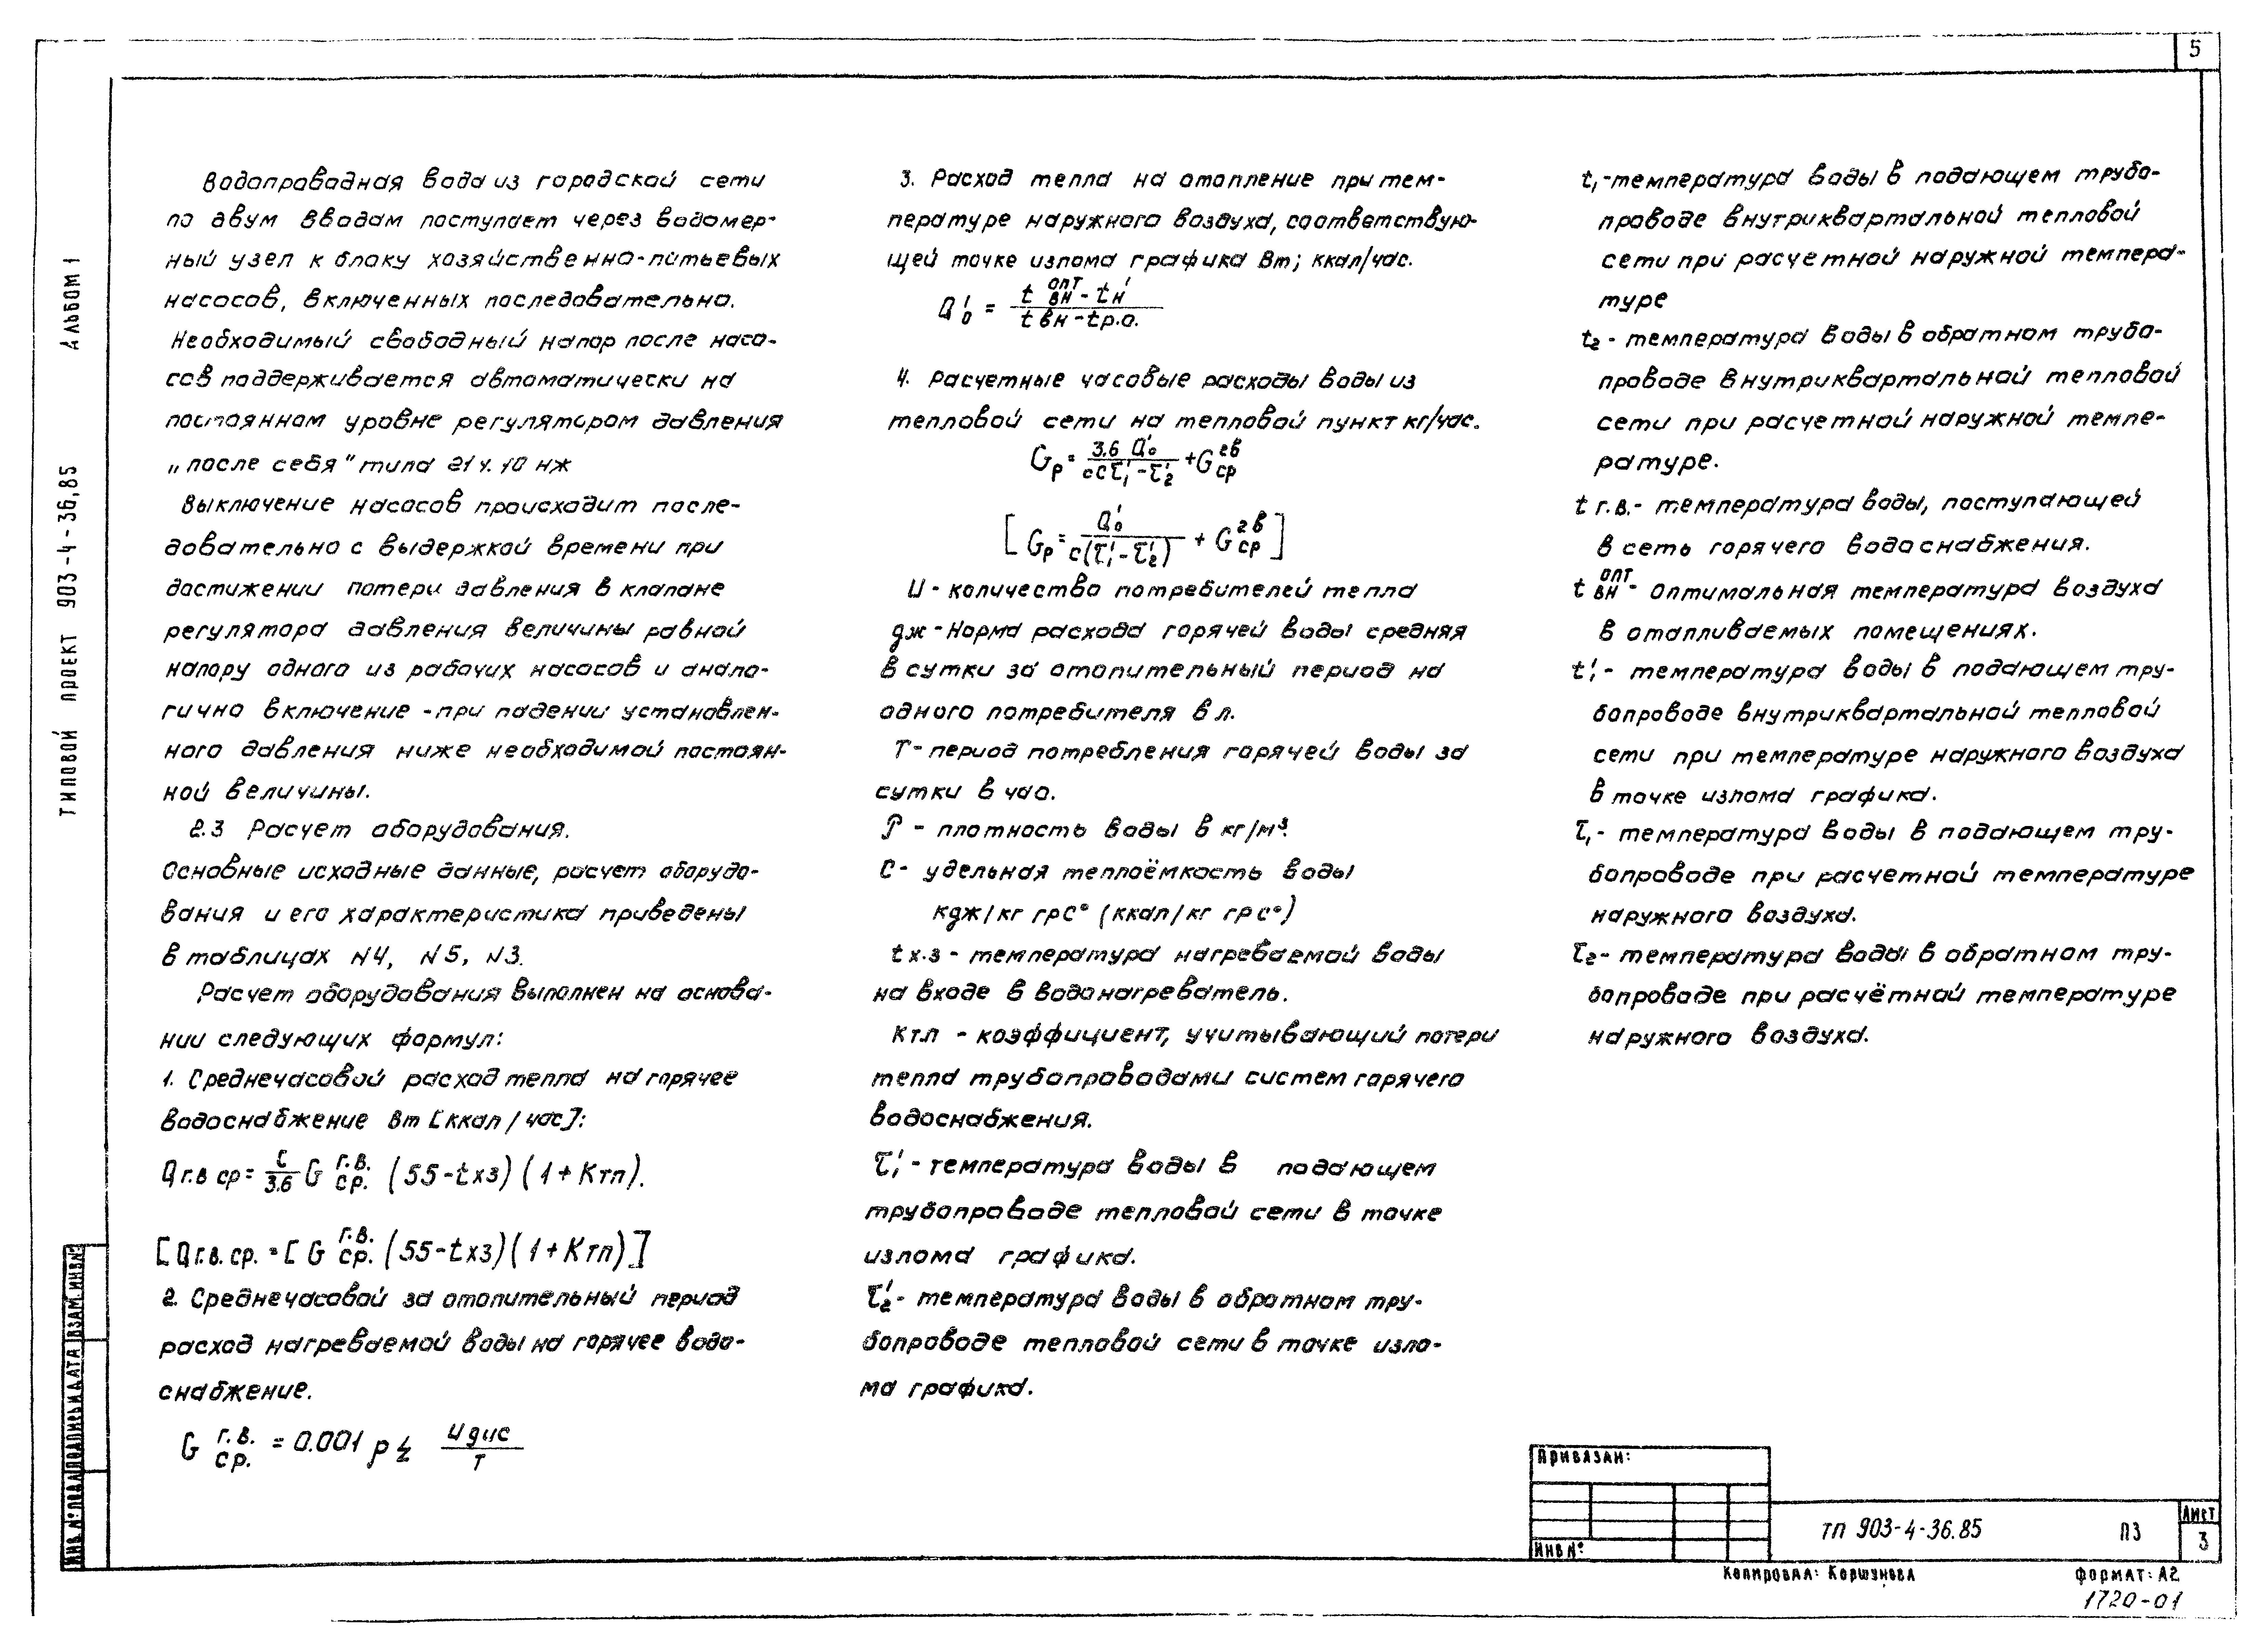 5
Водопроводная вода из городской сети
по двум вводам поступает через водомер-
ный узел к блоку хозяйственно-питьевых
насосов, включенных последовательно.
Необходимый свободный напор после насо-
сов поддерживается автоматически на
постоянном уровне регулятором давления
„после себя" типа 21ч.10 нж
Выключение насосов происходит после-
довательно с выдержкой времени при
достижении потери давления в клапане
регулятора давления величины равной
напору одного из рабочих насосов и анало-
гично включение - при падении установлен-
ного давления ниже необходимой постоян-
ной величины.
2.3 Расчет оборудования.
Основные исходные данные, расчет оборудо-
вания и его характеристика приведены
в таблицах N4, N5, N3.
Расчет оборудования выполнен на основа-
нии следующих формул:
1. Среднечасовой расход тепла на горячее
водоснабжение Вт [ккал/час]:
Qг.в ср = C/3.6 G г.в. ср. (55-tхз)(1+Ктп).
[Qг.в. ср. = C G г.в. ср. (55-tхз)(1+Ктп)]
2. Среднечасовой за отопительный период
расход нагреваемой воды на горячее водо-
снабжение.
G г.в. ср. = 0.001 р
3. Расход тепла на отопление при тем-
пературе наружного воздуха, соответствую-
щей точке излома графика Вт; ккал/час.
Q'о = (t опт вн - tн') / (tвн - tр.о.)
4. Расчетные часовые расходы воды из
тепловой сети на тепловой пункт кг/час.
Gр = 3.6 Q'о / сС τ'1 - τ'2 + G гв ср
[Gр = Q'о / с(τ'1 - τ'2) + G гв ср]
И - количество потребителей тепла
дж - Норма расхода горячей воды средняя
в сутки за отопительный период на
одного потребителя в л.
Т - период потребления горячей воды за
сутки в час.
ρ - плотность воды в кг/м³.
С - удельная теплоёмкость воды
кдж/кг грС° (ккал/кг грс°)
tх.з - температура нагреваемой воды
на входе в водонагреватель.
Ктп - коэффициент, учитывающий потери
тепла трубопроводами систем горячего
водоснабжения.
τ'1 - температура воды в подающем
трубопроводе тепловой сети в точке
излома графика.
τ'2 - температура воды в обратном тру-
бопроводе тепловой сети в точке изло-
ма графика.
t1 - температура воды в подающем трубо-
проводе внутриквартальной тепловой
сети при расчетной наружной темпера-
туре
t2 - температура воды в обратном трубо-
проводе внутриквартальной тепловой
сети при расчетной наружной темпе-
ратуре.
t г.в. - температура воды, поступающей
в сеть горячего водоснабжения.
t опт вн - Оптимальная температура воздуха
в отапливаемых помещениях.
t'1 - температура воды в подающем тру-
бопроводе внутриквартальной тепловой
сети при температуре наружного воздуха
в точке излома графика.
τ1 - температура воды в подающем тру-
бопроводе при расчетной температуре
наружного воздуха.
τ2 - температура воды в обратном тру-
бопроводе при расчётной температуре
наружного воздуха.
Альбом 1
Типовой проект 903-4-36.85
Инв. № подл. Подпись и дата Взам. инв. №
Привязан:
Инв №
ТП 903-4-36.85
ПЗ
Лист
3
Копировал: Коршунова
Формат: А2
1720-01